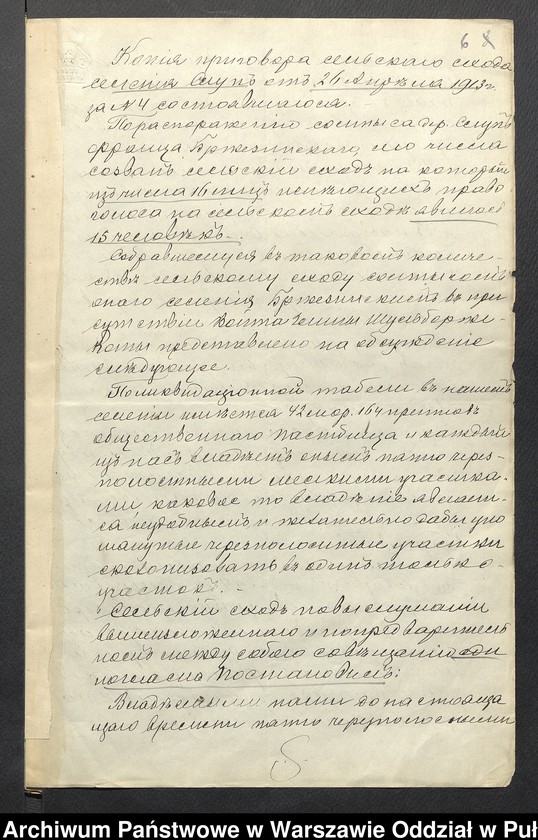 6 8
Копія приговора сельскаго схода
селенія Слупъ отъ 26 Апрѣля 1913 г.
за № 4 состоявшагося.
По распоряженію солтыса др. Слупъ
Франца Бржезинскаго, сего числа
созванъ сельскій сходъ на который
изъ числа 16 лицъ имѣющихъ право
голоса на сельскомъ сходѣ явилось
15 человѣкъ.
Собравшемуся въ таковомъ количе-
ствѣ сельскому сходу солтысомъ
онаго селенія Бржезинскимъ въ при-
сутствіи Войта Гмины
представлено на обсужденіе
слѣдующее.
По ликвидационной табели въ нашемъ
селеніи имѣется 42 мор. 164 прентовъ
общественнаго пастбища и каждый
изъ насъ владѣетъ онымъ через-
полосными мелкими участка-
ми каковое то владѣніе являет-
ся неудобнымъ и желательно дабы упо
манутые черезполосные участки
въ одинъ только
участокъ.
Сельскій сходъ по выслушаніи
вышеизложеннаго и по предварител
номъ между собою совѣщанію еди
ногласно Постановилъ:
Владѣемыми нами до настояща
щаго времени черезполосными
Archiwum Państwowe w Warszawie Oddział w Puł